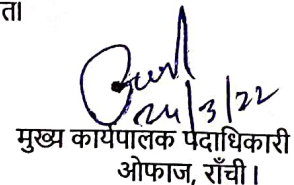 ता
24/3/22
मुख्य कार्यपालक पदाधिकारी
ओफाज, राँची।